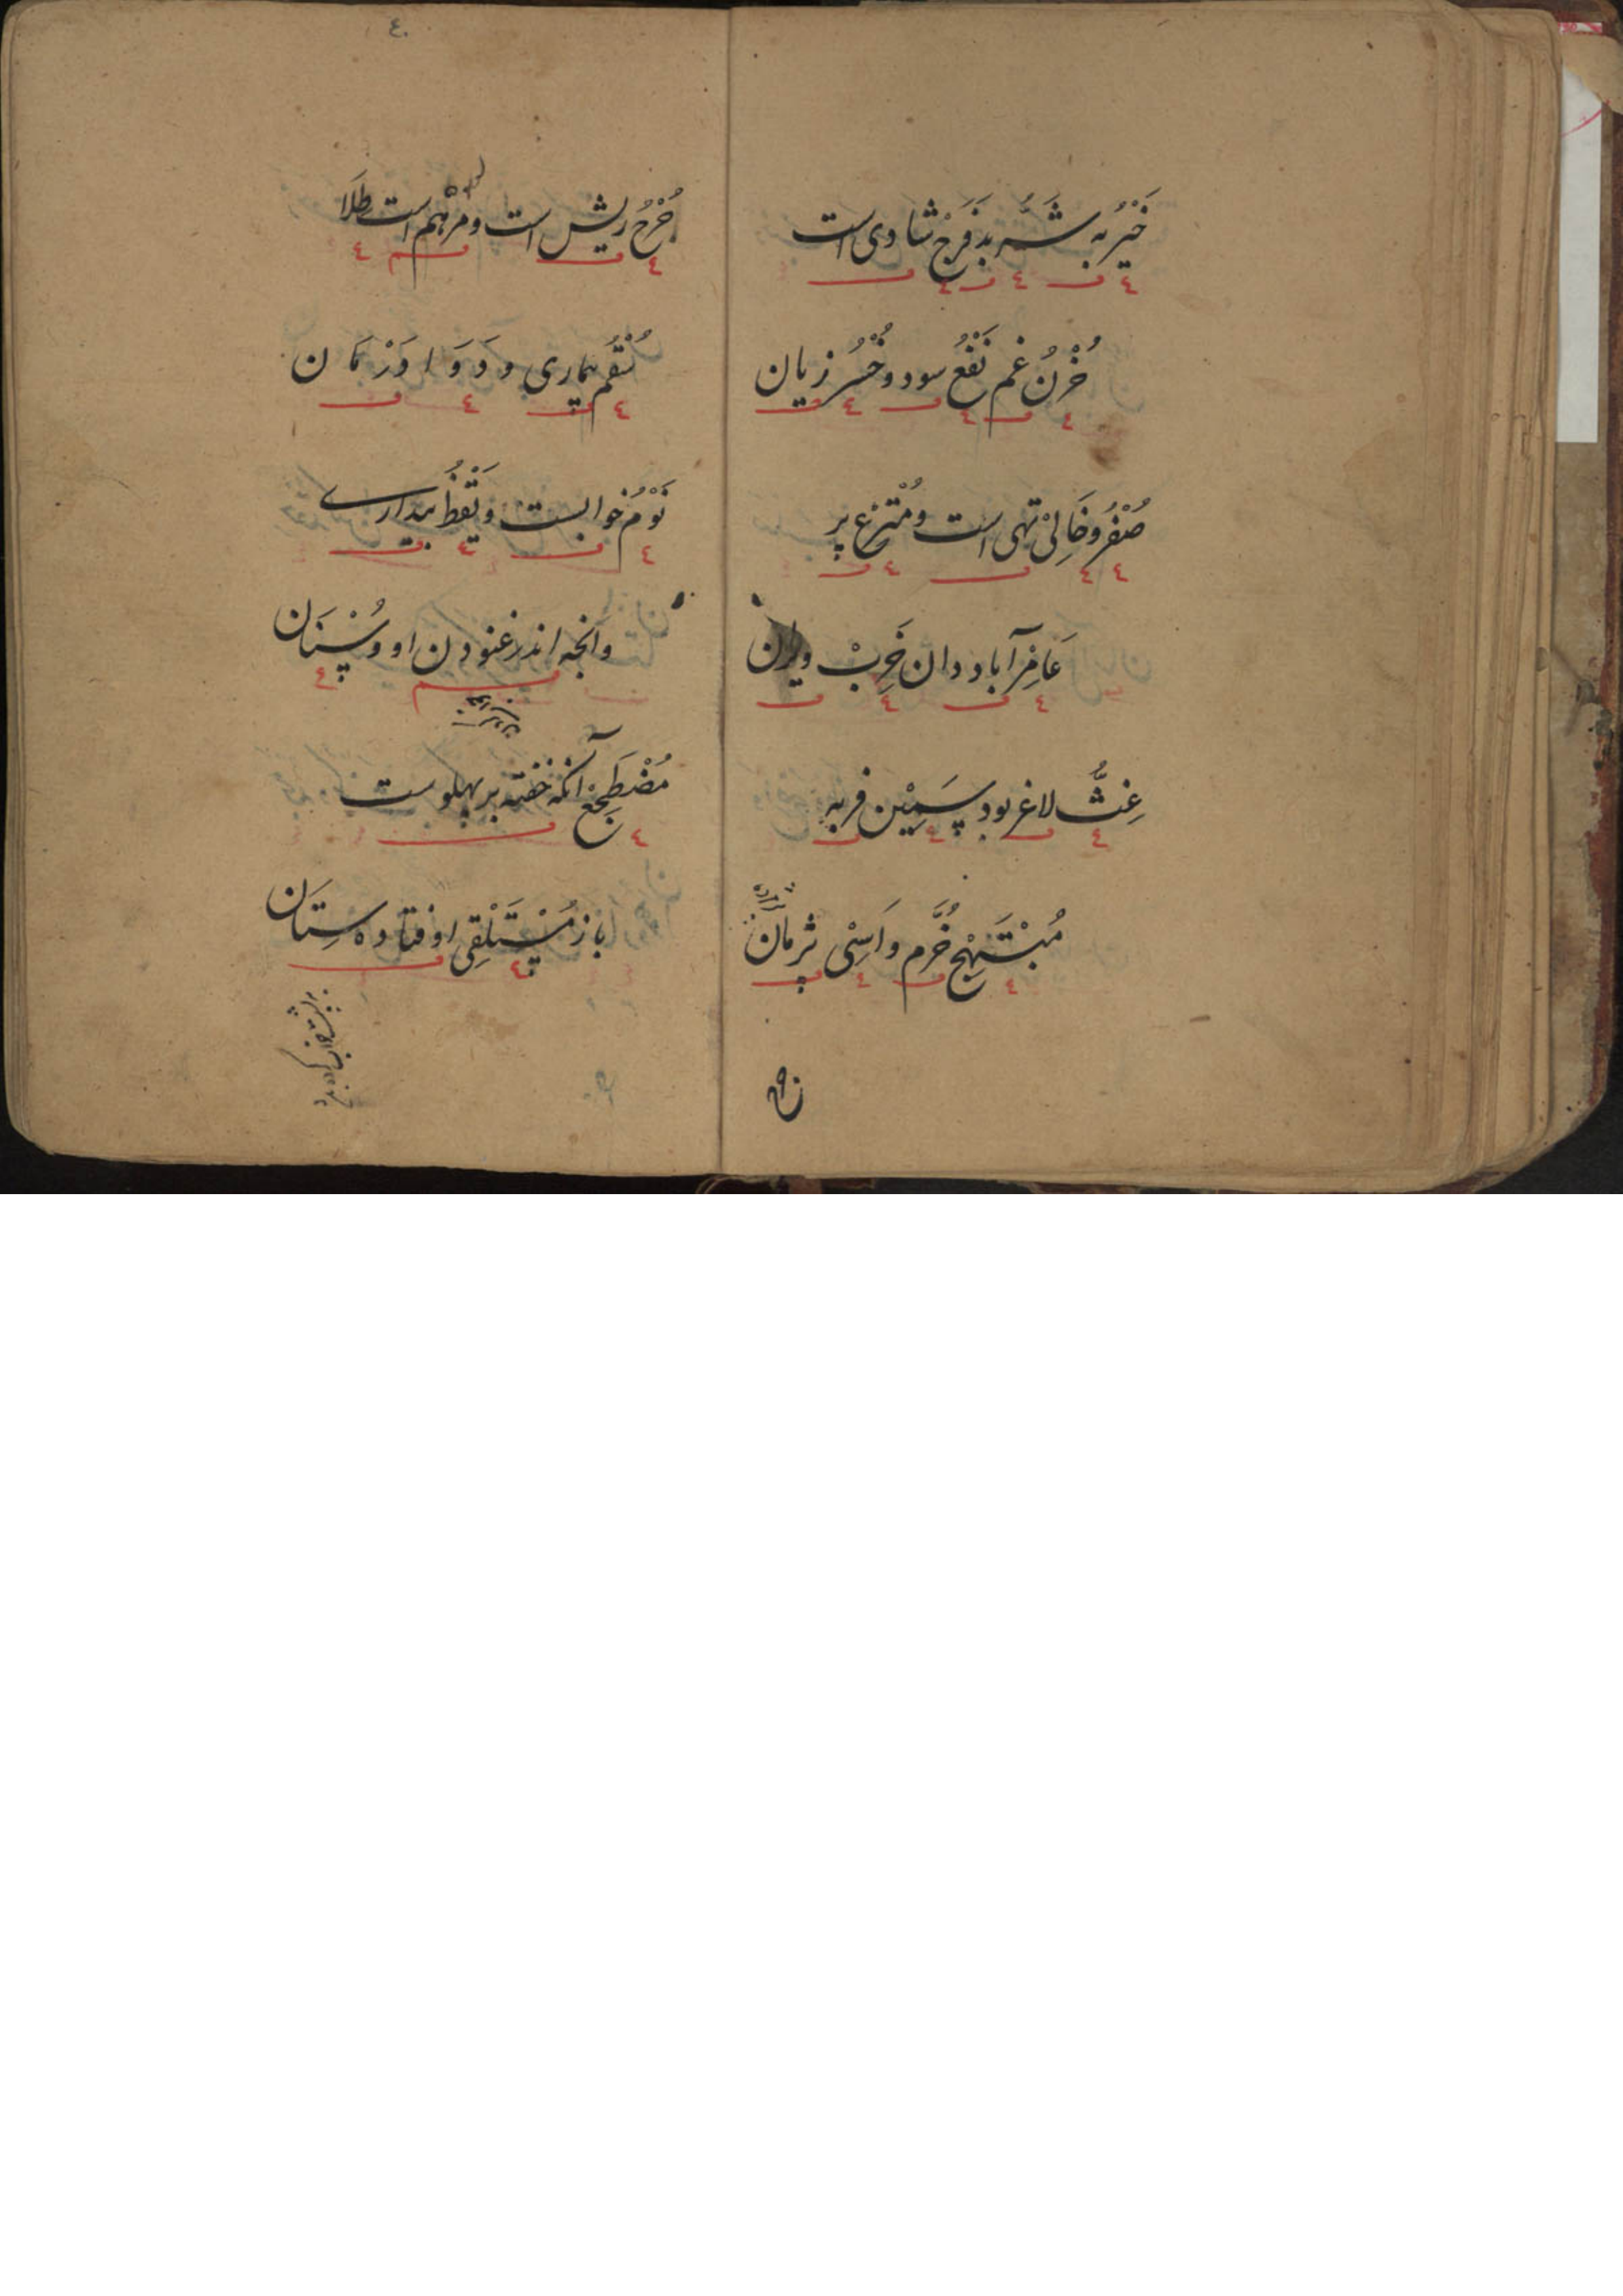 خَیْرُ به شَرُّ بد فَرَحْ شادی است
حُزْنُ غم نَفْعُ سود و خُسْرُ زیان
صُفْرُ و خَالِیْ تهی است و مُتْرَعْ پر
عَامِرْ آباد دان خَرِبْ ویران
غَثُّ لاغر بود سَمِیْن فربه
مُبْتَهِجْ خُرَّم و اَسِیْ پژمان
٤٠
جُرْحُ ریش است و مرْهم است طِلَا
سُقْمُ بیماری و دَوَا دَرْمَان
نَوْمُ خوابست و یَقْظُ بیداری
وانچه اندر غنودن او وُسْنَان
مُضْطَجِعْ آنکه خفته بر پهلوست
باز مُسْتَلْقِی اوفتاده سِتَان